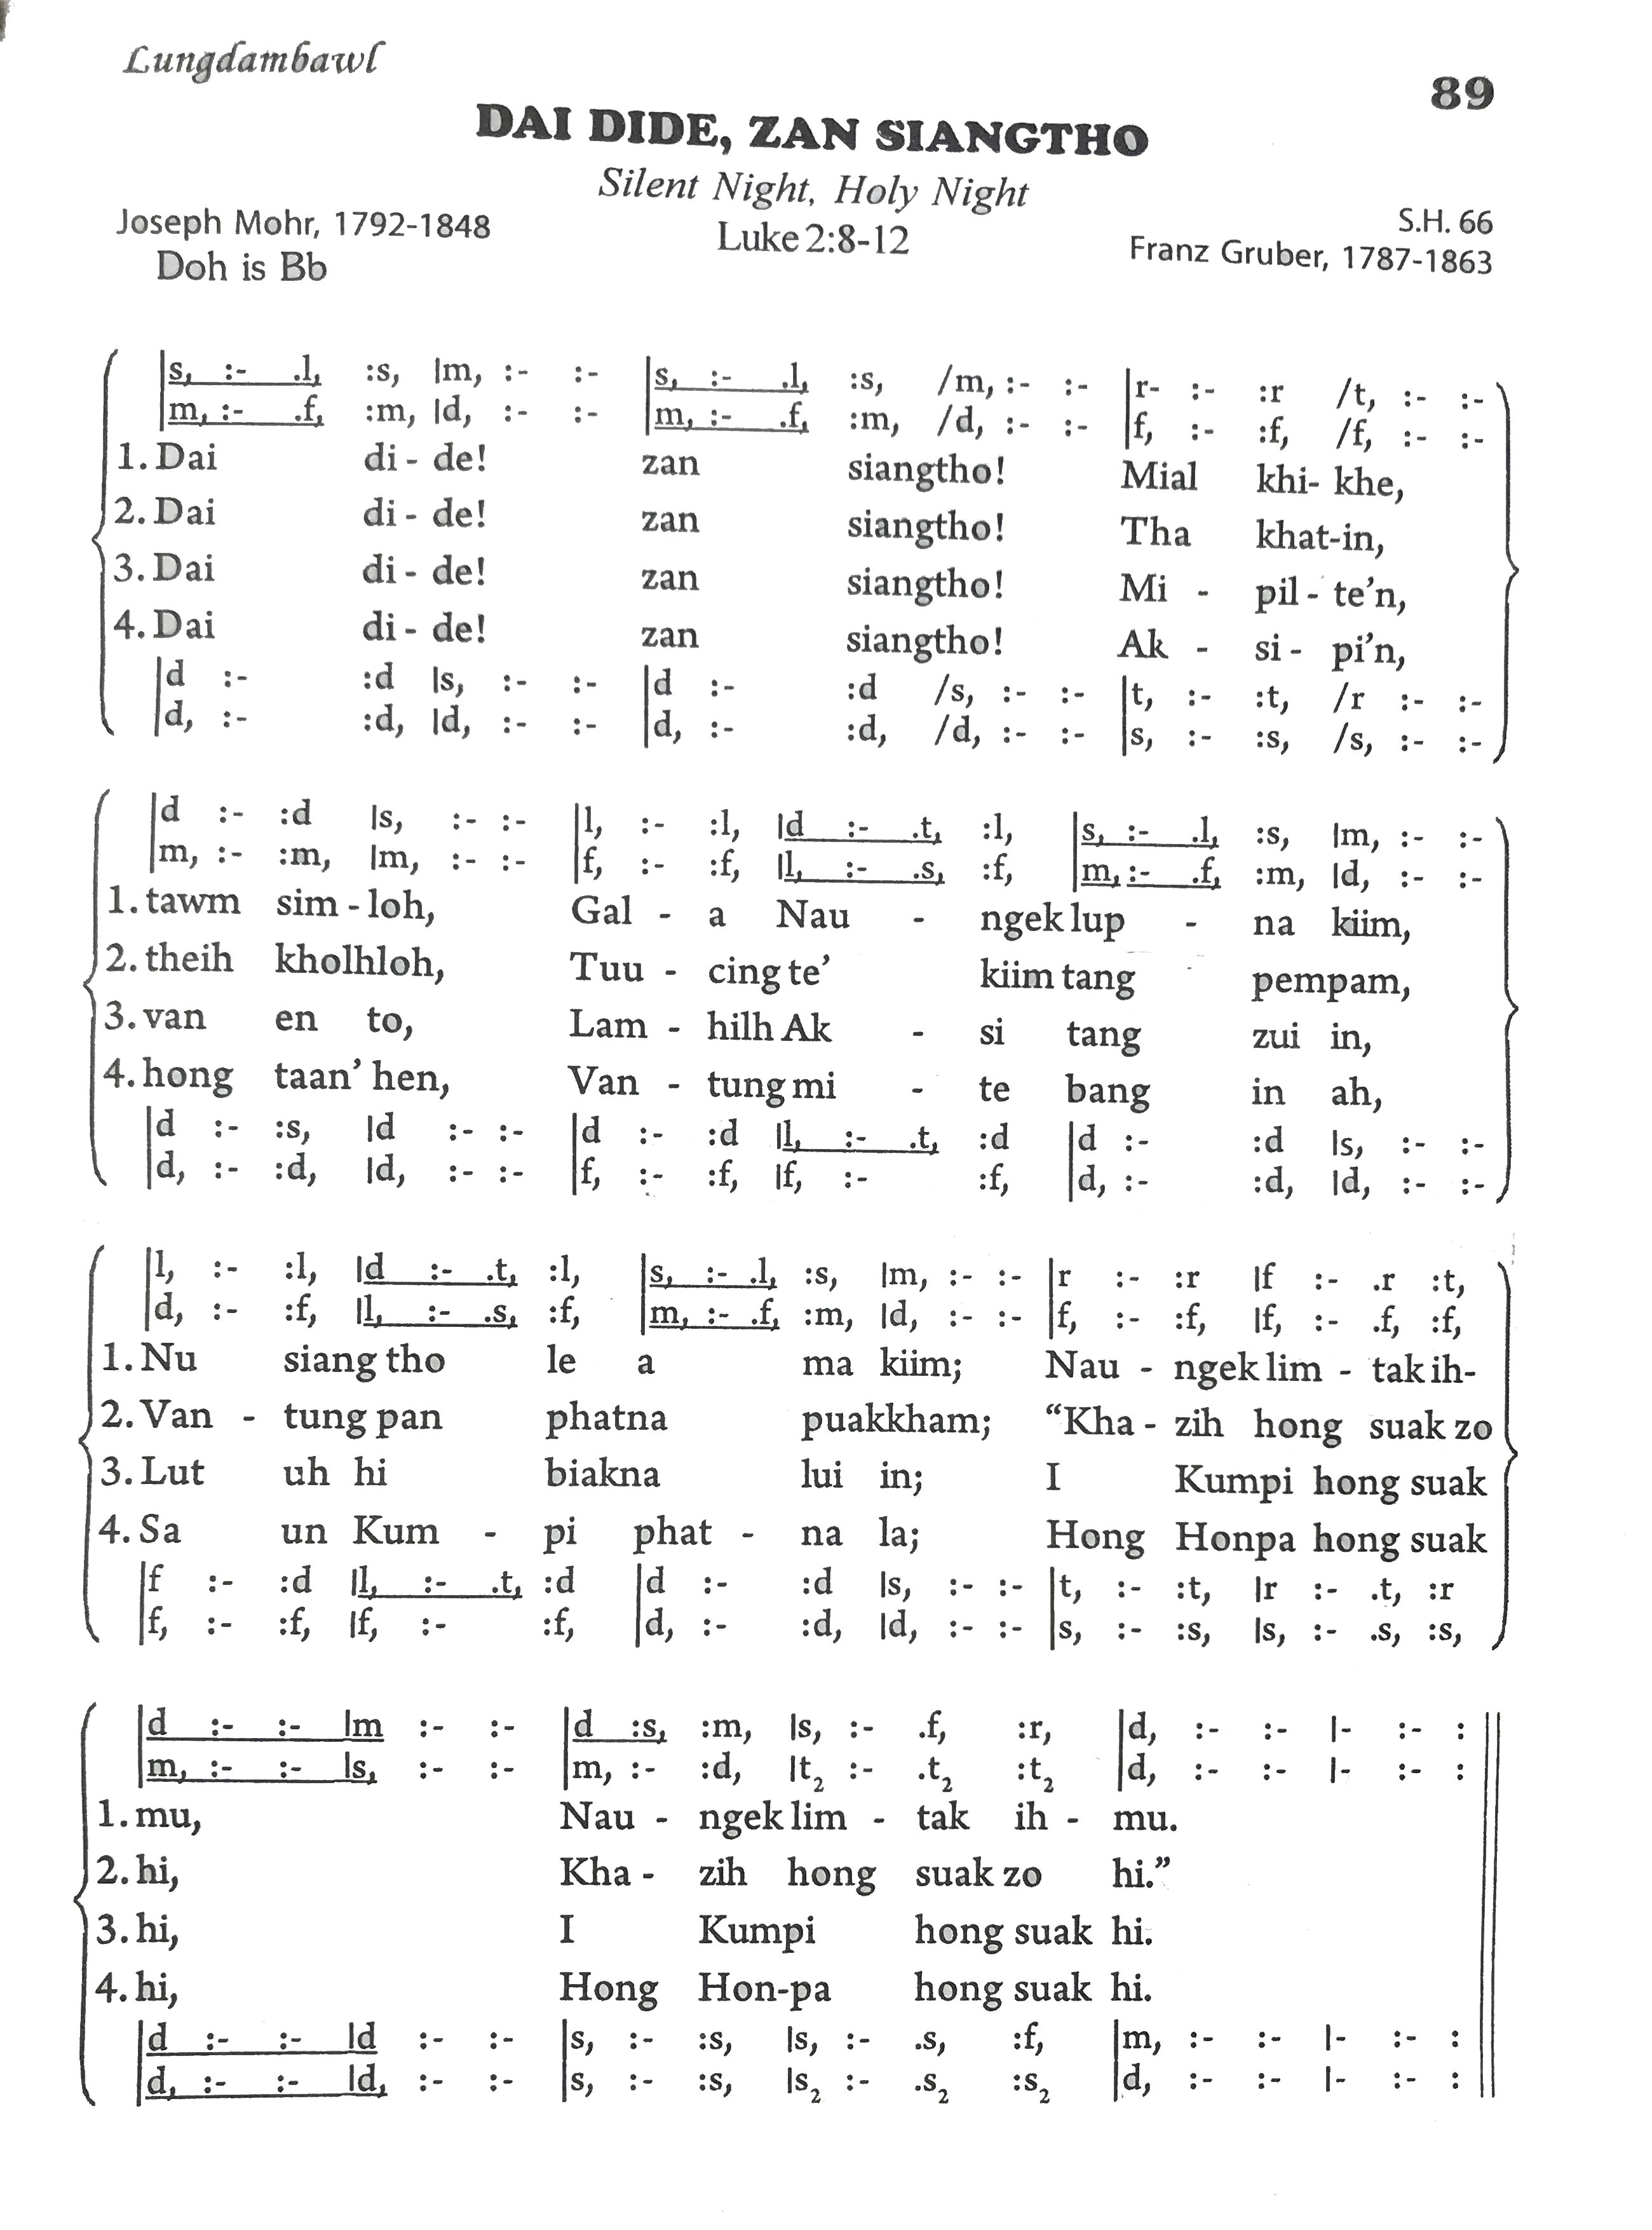 Lungdambawl
89
DAI DIDE, ZAN SIANGTHO
Silent Night, Holy Night
Joseph Mohr, 1792-1848
Luke 2:8-12
S.H. 66
Doh is Bb
Franz Gruber, 1787-1863
|s, :- .l, :s, |m, :- :- |s, :- .l, :s, /m, :- :- |r- :- :r /t, :- :-
|m, :- .f, :m, |d, :- :- |m, :- .f, :m, /d, :- :- |f, :- :f, /f, :- :-
1. Dai di - de! zan siangtho! Mial khi- khe,
2. Dai di - de! zan siangtho! Tha khat-in,
3. Dai di - de! zan siangtho! Mi - pil - te’n,
4. Dai di - de! zan siangtho! Ak - si - pi’n,
|d :- :d |s, :- :- |d :- :d /s, :- :- |t, :- :t, /r :- :-
|d, :- :d, |d, :- :- |d, :- :d, /d, :- :- |s, :- :s, /s, :- :-
|d :- :d |s, :- :- |l, :- :l, |d :- .t, :l, |s, :- .l, :s, |m, :- :-
|m, :- :m, |m, :- :- |f, :- :f, |l, :- .s, :f, |m, :- .f, :m, |d, :- :-
1. tawm sim - loh, Gal - a Nau - ngek lup - na kiim,
2. theih kholhloh, Tuu - cing te’ kiim tang - pempam,
3. van en to, Lam - hilh Ak - si tang zui in,
4. hong taan’ hen, Van - tung mi - te bang in ah,
|d :- :s, |d :- :- |d :- :d |l, :- .t, :d |d :- :d |s, :- :-
|d, :- :d, |d, :- :- |f, :- :f, |f, :- :f, |d, :- :d, |d, :- :-
|l, :- :l, |d :- .t, :l, |s, :- .l, :s, |m, :- :- |r :- :r |f :- .r :t,
|d, :- :f, |l, :- .s, :f, |m, :- .f, :m, |d, :- :- |f, :- :f, |f, :- .f, :f,
1. Nu siang tho le a ma kiim; Nau - ngek lim - tak ih-
2. Van - tung pan phatna puakkham; “Kha - zih hong suak zo
3. Lut uh hi biakna lui in; I Kumpi hong suak
4. Sa un Kum - pi phat - na la; Hong Honpa hong suak
|f :- :d |l, :- .t, :d |d :- :d |s, :- :- |t, :- :t, |r :- .t, :r
|f, :- :f, |f, :- :f, |d, :- :d, |d, :- :- |s, :- :s, |s, :- .s, :s,
|d :- :- |m :- :- |d :s, :m, |s, :- .f, :r, |d, :- :- |- :- :
|m, :- :- |s, :- :- |m, :- :d, |t₂ :- .t₂ :t₂ |d, :- :- |- :- :
1. mu, Nau - ngek lim - tak ih - mu.
2. hi, Kha - zih hong suak zo hi.”
3. hi, I Kumpi hong suak hi.
4. hi, Hong Hon-pa hong suak hi.
|d :- :- |d :- :- |s, :- :s, |s, :- .s, :f, |m, :- :- |- :- :
|d, :- :- |d, :- :- |s, :- :s, |s₂ :- .s₂ :s₂ |d, :- :- |- :- :